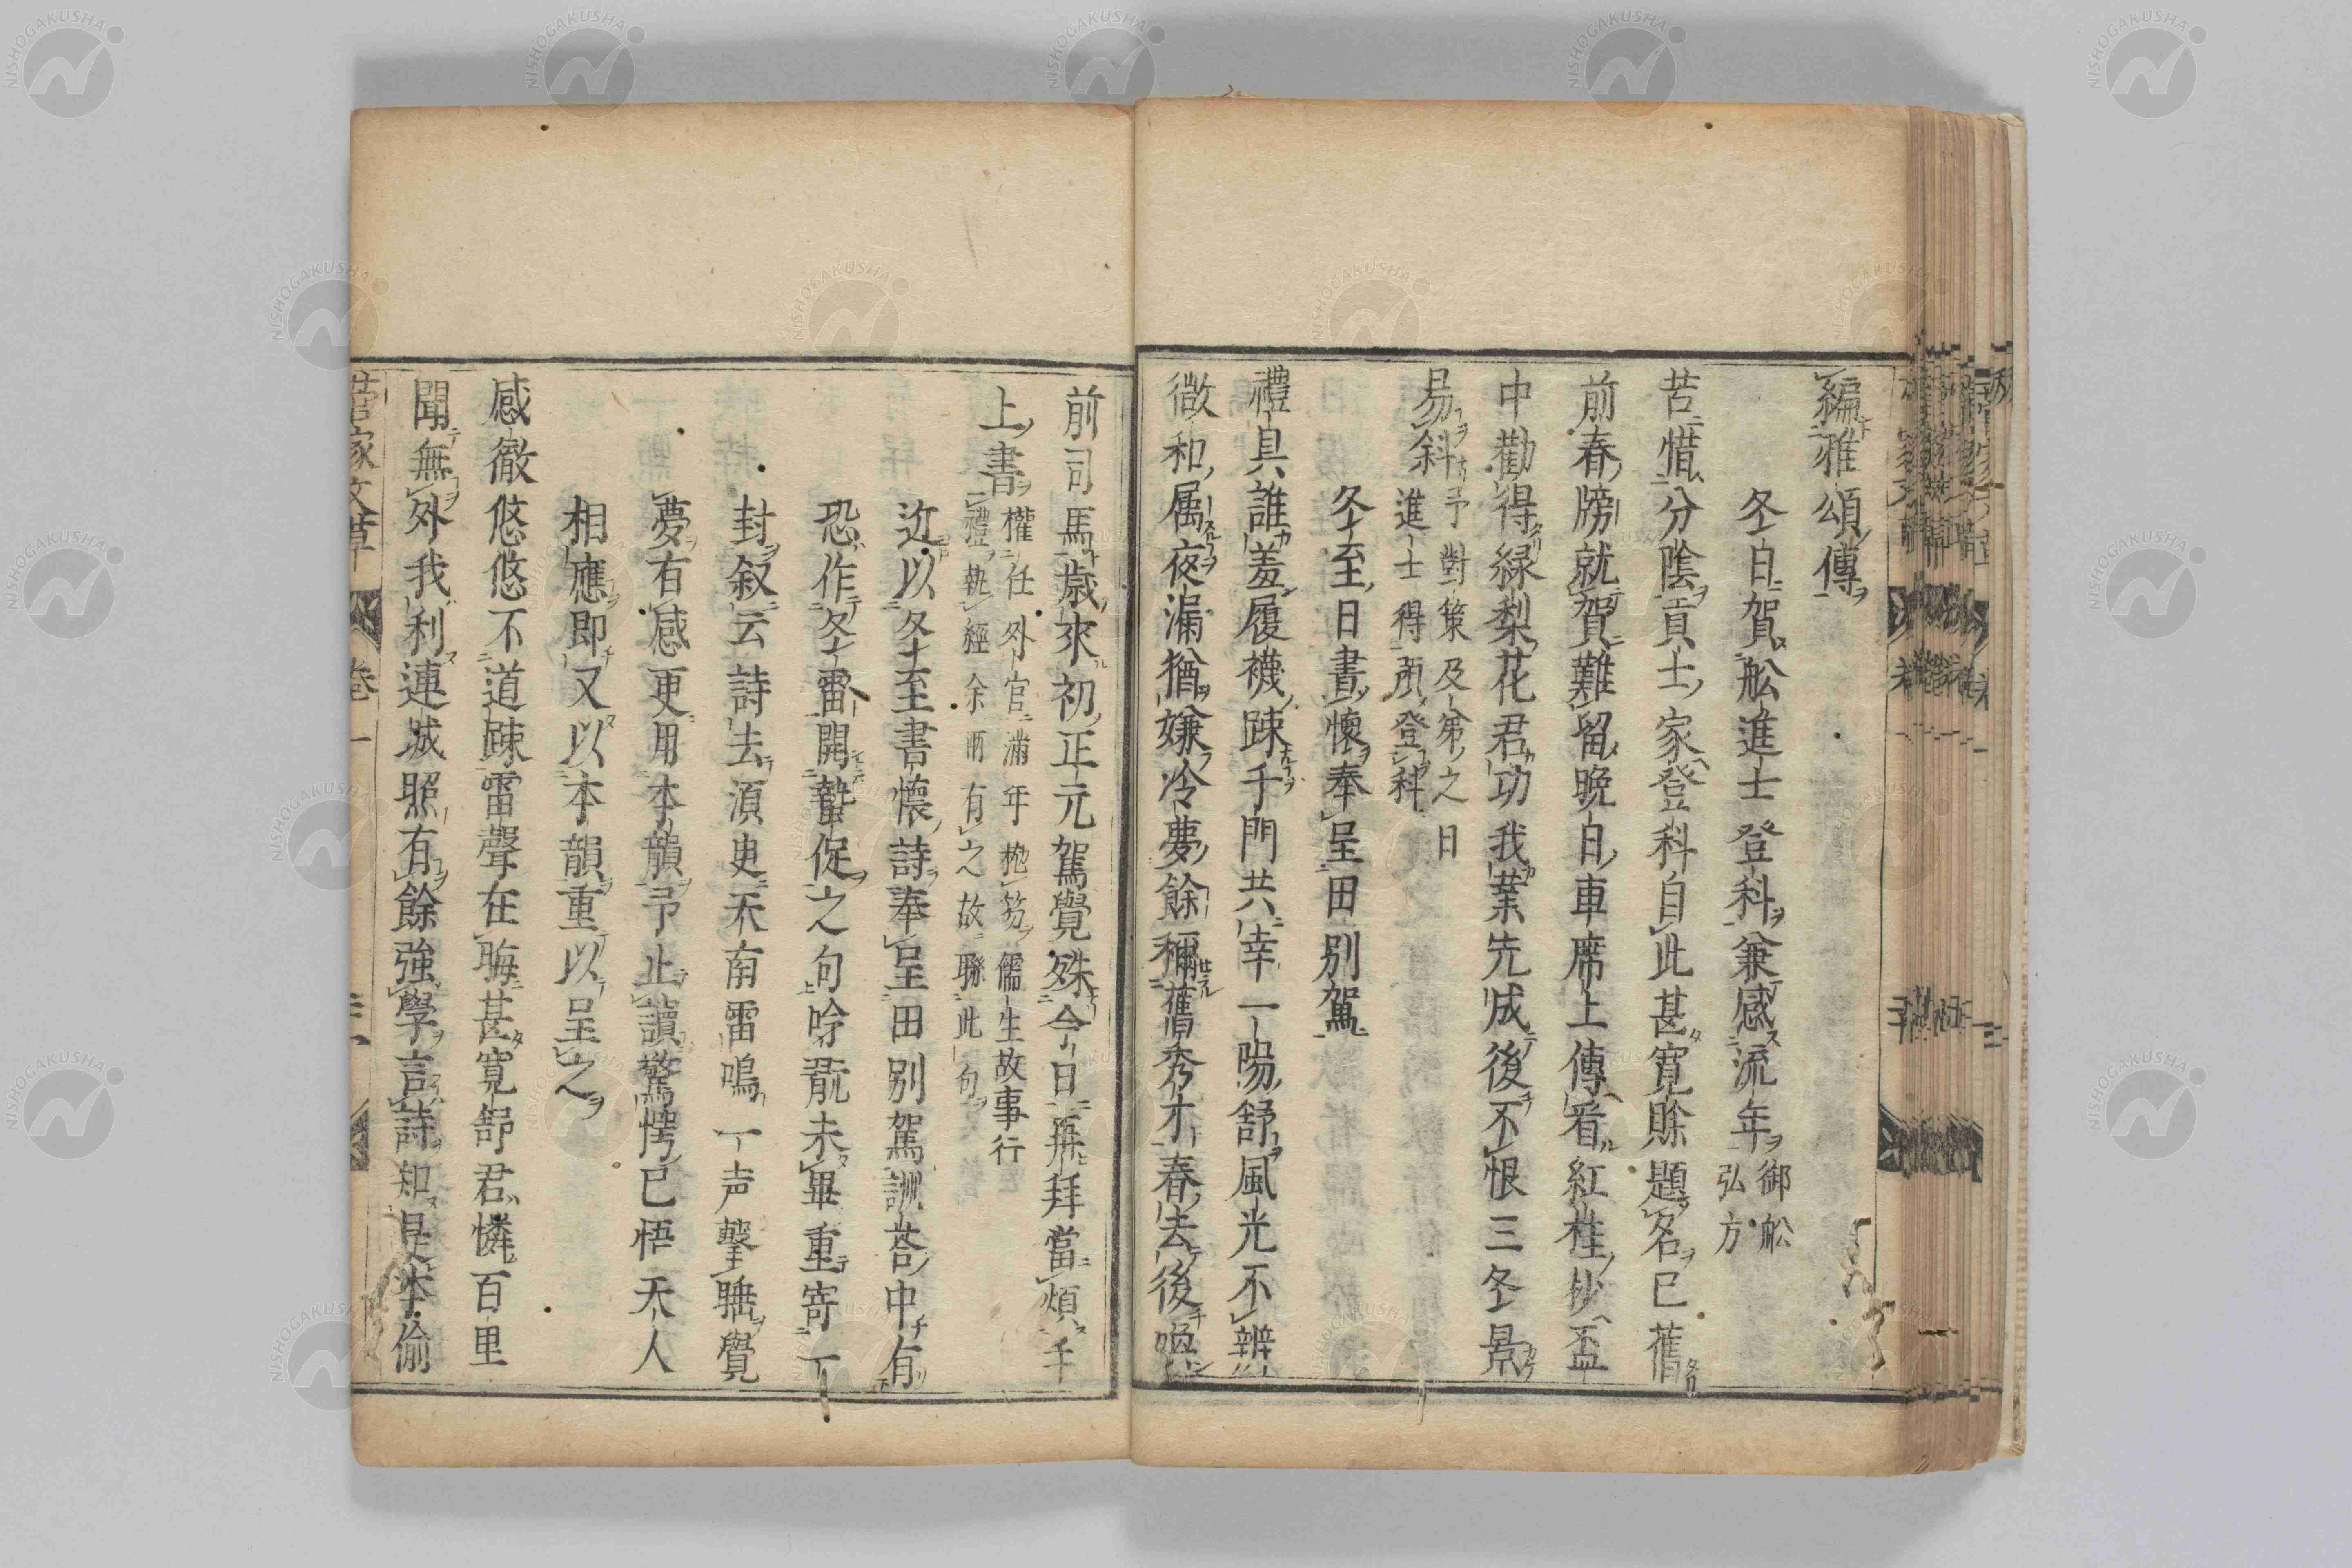 編雅頌傳
冬日賀舩進士登科兼感流年 御舩
弘方
苦惜分陰貢士家登科自此甚寛賖題名已舊
前春牓就賀難留晩日車席上傳看紅桂杪盃
中勸得緑梨花君功我業先成後不恨三冬景
易斜 予對策及第之日
進士得預登科
冬至日書懷奉呈田別駕
禮具誰羞履襪踈手門共幸一陽舒風光不辨
微和属夜漏猶嫌冷夢餘稱舊秀才春去後喚
前司馬歳來初正元駕覺殊今日再拜當煩千
上書 權任外官滿年抱笏儒生故事行
禮執經余兩有之故聯此句
近以冬至書懷詩奉呈田別駕訓荅中有
恐作冬雷開蟄促之句吟翫未畢重寄一
封叙云詩去須臾天南雷鳴一声擊睡覺
夢有感更用本韻予止讀驚愕已悟天人
相應即又以本韻重以呈之
感徹悠悠不道踈雷聲在晦甚寛舒君憐百里
聞無外我利連城照有餘強學言詩知是本偷
菅家文草 巻一
NISHOGAKUSHA